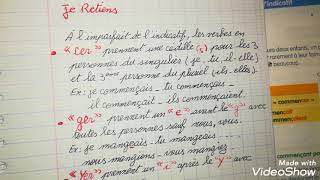 Je Retiens
À l'imparfait de l'indicatif, les verbes en
"cer" prennent une cédille (ç) pour les 3
personnes du singulier (je, tu, il-elle)
et la 3ème personne du pluriel (ils-elles).
Ex: je commençais - tu commençais -
il commençait - ils commençaient.
"ger" prennent un "e" avant le "g" avec
toutes les personnes sauf nous, vous.
Ex: je mangeais - tu mangeais
nous mangions - vous mangiez
"yer" prennent un "i" après le "y" avec
l'indicatif
deux enfants, un
commencer
Made with
VideoShow